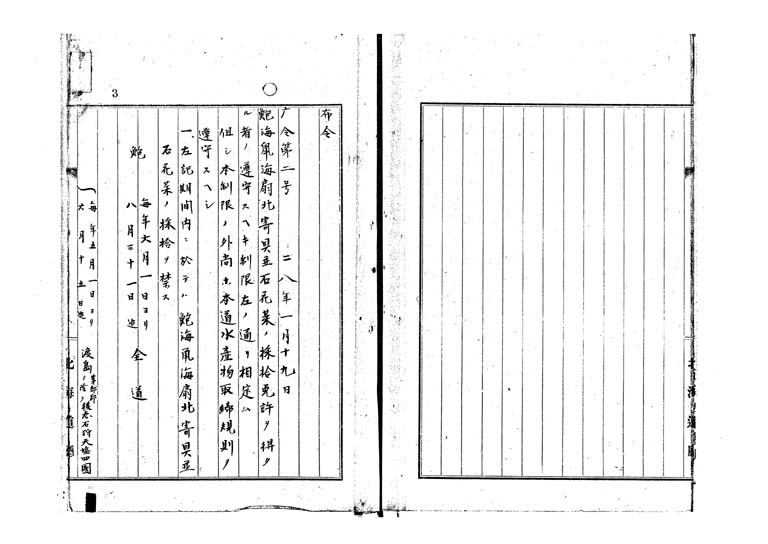 3
布令
庁令第二号 二八年一月十九日
鮑海鼠海扇北寄貝並石花菜ノ採拾免許ヲ得タ
ル者ノ遵守スヘキ制限左ノ通リ相定ム
但シ本制限ノ外尚ホ本道水産物取締規則ヲ
遵守スヘシ
一、左記期間内ニ於テハ鮑海鼠海扇北寄貝並
石花菜ノ採拾ヲ禁ス
鮑 毎年六月一日ヨリ
八月三十一日迄 全道
毎年五月一日ヨリ
六月十五日迄 渡島茅部郡ノ除ク後志石狩天塩四國
北海道廳
北海道廳